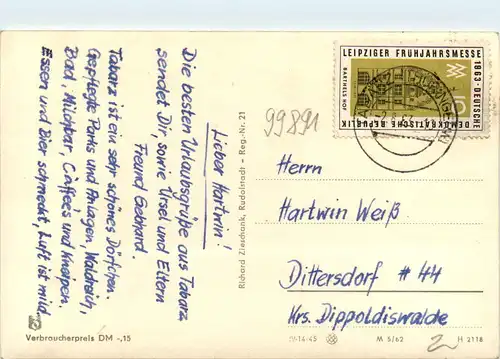 Lieber Hartwin!
Die besten Urlaubsgrüße aus Tabarz
sendet Dir sowie Ursel und Eltern
Freund Gebhard.
Tabarz ist ein sehr schönes Dörfchen.
Gepflegte Parks und Anlagen, Waldreich,
Bad, Milchbar, Caffee's und Kneipen.
Essen und Bier schmeckt, Luft ist mild.
Verbraucherpreis DM -,15
Richard Zieschank, Rudolstadt - Reg.-Nr. 21
99891
LEIPZIGER FRÜHJAHRSMESSE
1963 · DEUTSCHE
DEMOKRATISCHE REPUBLIK
BARTHELS HOF
Herrn
Hartwin Weiß
Dittersdorf # 44
Krs. Dippoldiswalde
M 5/62
H 2118